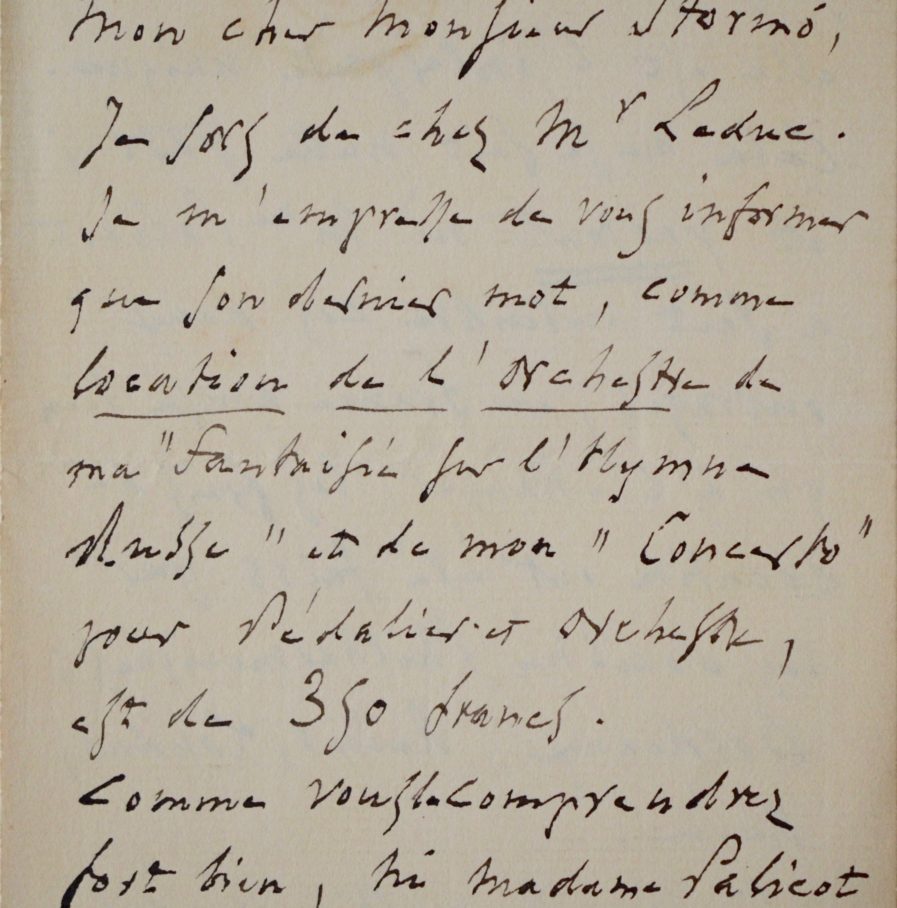 Mon cher Monsieur Stormó,
Je sors de chez Mr Leduc.
Je m'empresse de vous informer
que son dernier mot, comme
location de l'orchestre de
ma "Fantaisie sur l'Hymne
Russe" et de mon "Concerto"
pour Pédalier et orchestre,
est de 350 francs.
Comme vous le comprendrez
fort bien, ni madame Palicot